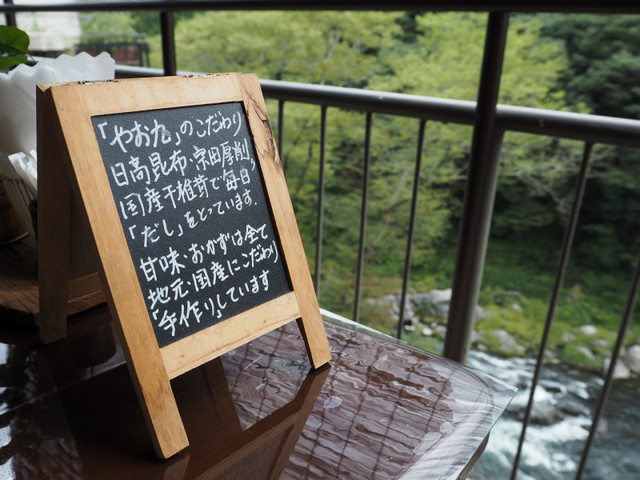 「やお九」のこだわり
日高昆布・宗田厚削り
国産干椎茸で毎日
「だし」をとっています。
甘味・おかずは全て
地元・国産にこだわり
「手作り」しています